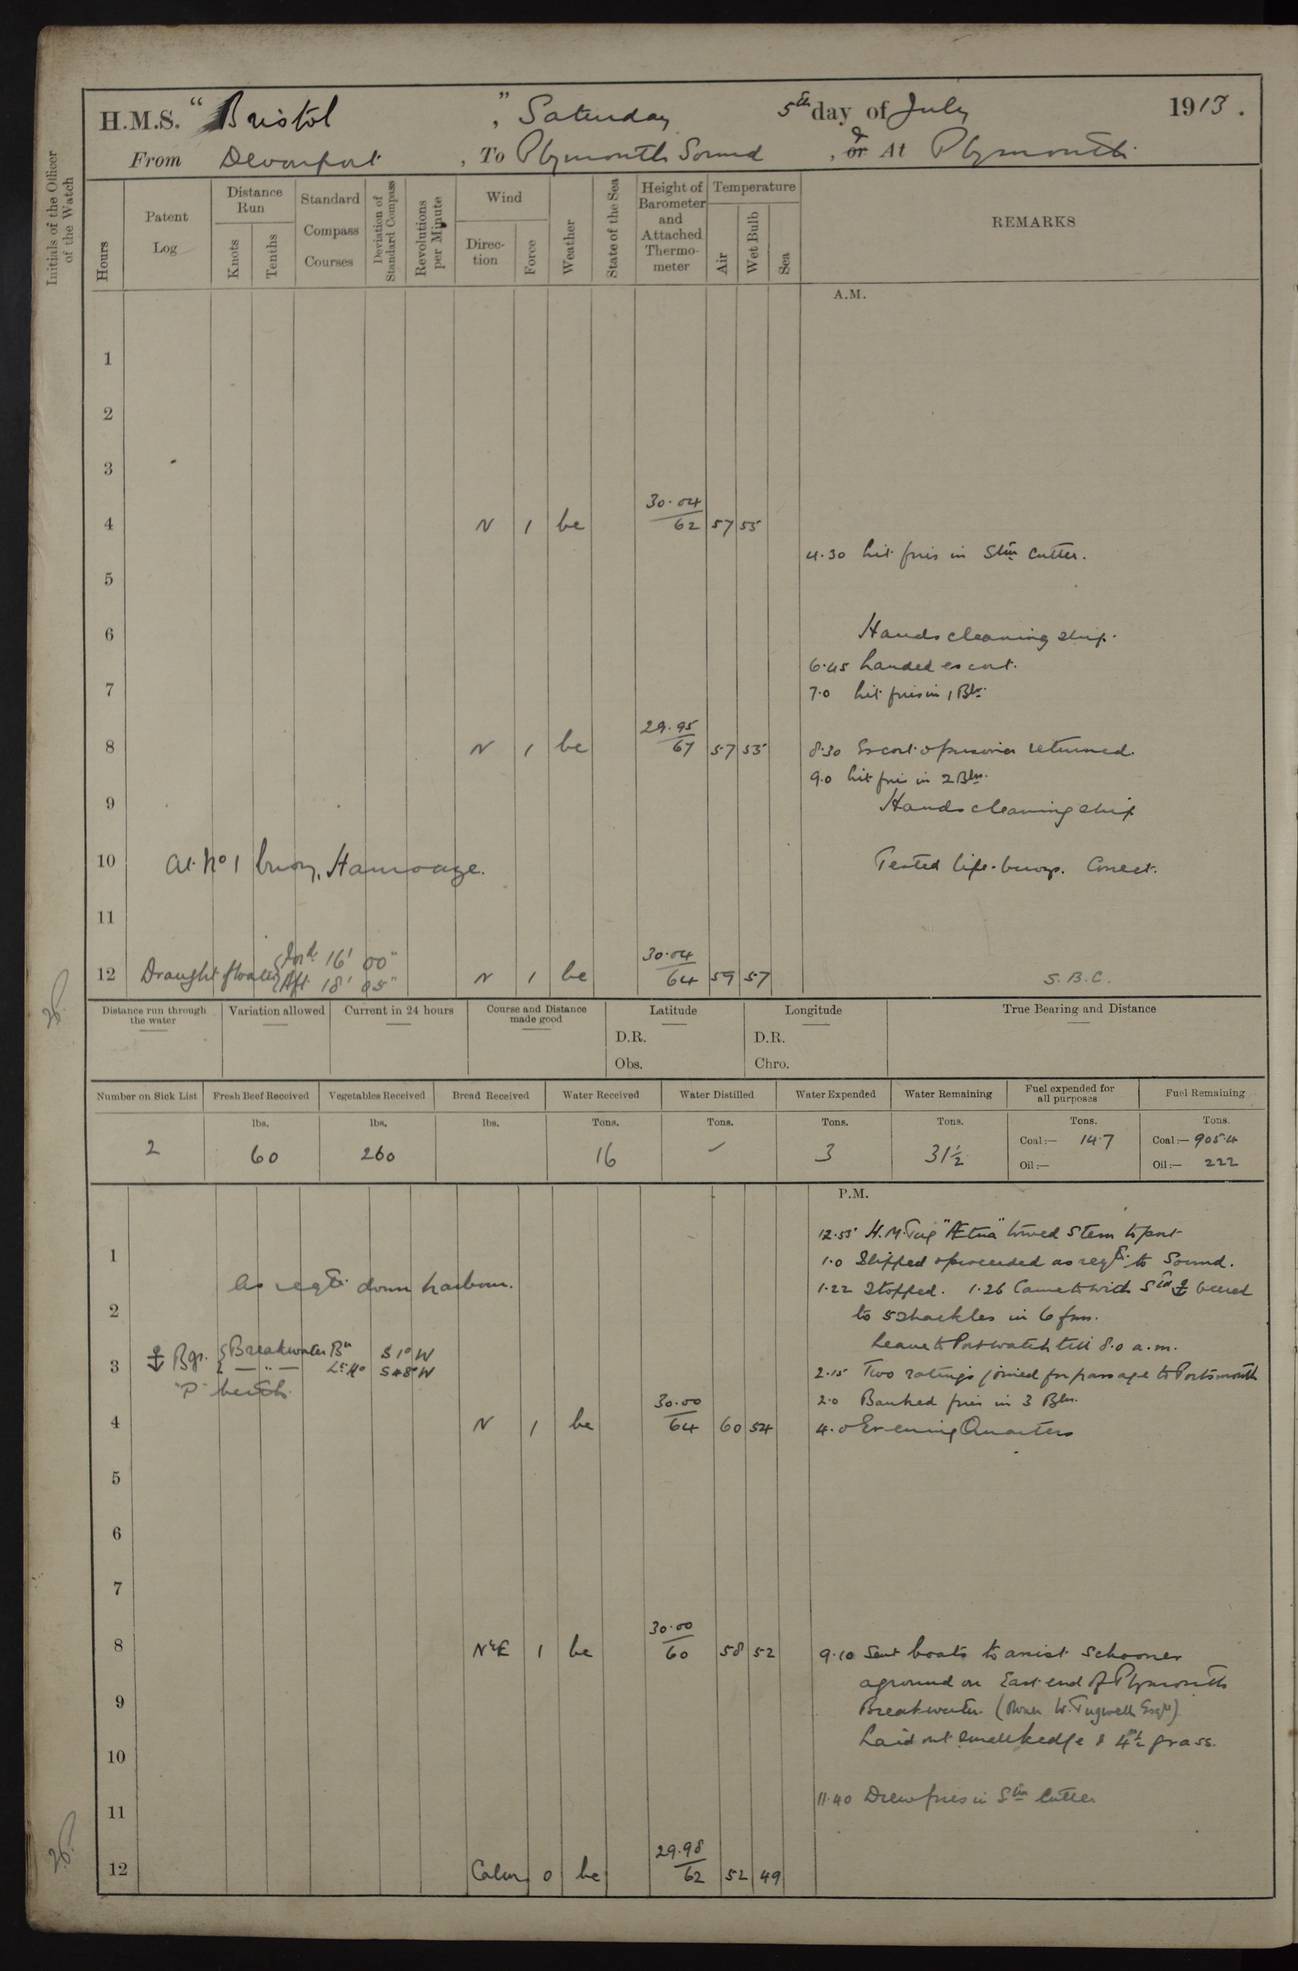 H.M.S. "Bristol", Saturday 5th day of July 1913.
From Devonport, To Plymouth Sound, & or At Plymouth
Initials of the Officer of the Watch
Hours
Patent Log
Distance Run
Knots
Tenths
Standard Compass Courses
Deviation of Standard Compass
Revolutions per Minute
Wind
Direction
Force
Weather
State of the Sea
Height of Barometer and Attached Thermometer
Temperature
Air
Wet Bulb
Sea
REMARKS
A.M.
1
2
3
4 N 1 bc 30.04 62 57 55
4.30 Lit fires in Stm Cutter.
5
6 Hands cleaning ship.
6.45 Landed escort.
7 7.0 Lit fires in 1 Blr.
8 N 1 bc 29.95 67 57 55 8.30 Escort & prisoner returned.
9.0 Lit fires in 2 Blrs.
9 Hands cleaning ship
10 At No 1 buoy, Hamoaze. Tested life-buoys. Correct.
11
12 Draught of water Ford 16' 00" Aft 18' 05" N 1 bc 30.04 64 59 57 S.B.C.
Distance run through the water
Variation allowed
Current in 24 hours
Course and Distance made good
Latitude
D.R.
Obs.
Longitude
D.R.
Chro.
True Bearing and Distance
Number on Sick List
2
Fresh Beef Received
lbs.
60
Vegetables Received
lbs.
260
Bread Received
lbs.
Water Received
Tons.
16
Water Distilled
Tons.
Water Expended
Tons.
3
Water Remaining
Tons.
31½
Fuel expended for all purposes
Tons.
Coal:— 14.7
Oil:—
Fuel Remaining
Tons.
Coal:— 905.4
Oil:— 222
P.M.
12.55 H.M. Tug "Ætna" towed stern to port
1 1.0 Slipped & proceeded as reqte. to Sound.
As reqte. down harbour.
1.22 Stopped. 1.26 Came to with Std ⚓ veered
2 to 5 shackles in 6 fms.
Leave to Port watch till 8.0 a.m.
⚓ Bgs. Breakwater Bn S 1° W
3 — " — Lt Ho S 48° W 2.15 Two ratings joined for passage to Portsmouth
"P" berth. 2.0 Banked fires in 3 Blrs.
4 N 1 bc 30.00 64 60 54 4.0 Evening Quarters
5
6
7
8 N'E 1 bc 30.00 60 58 52 9.10 Sent boats to assist schooner
aground on East end of Plymouth
9 Breakwater (Owner W. Tugwell Esqre)
Laid out small kedge & 4½" grass.
10
11 11.40 Drew fires in Stm Cutter
12 Calm 0 bc 29.98 62 52 49